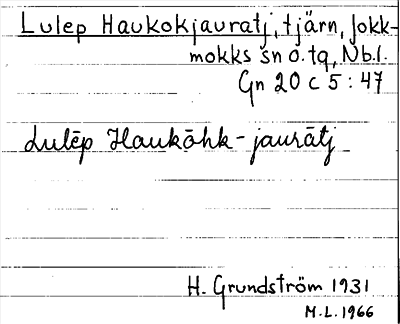 Lulep Haukokjauratj, tjärn, Jokk-
mokks sn o. tg, Nb.l.
Gn 20 C 5 : 47
Lulēp Haukōhk-jaurātj
H. Grundström 1931
M.L. 1966